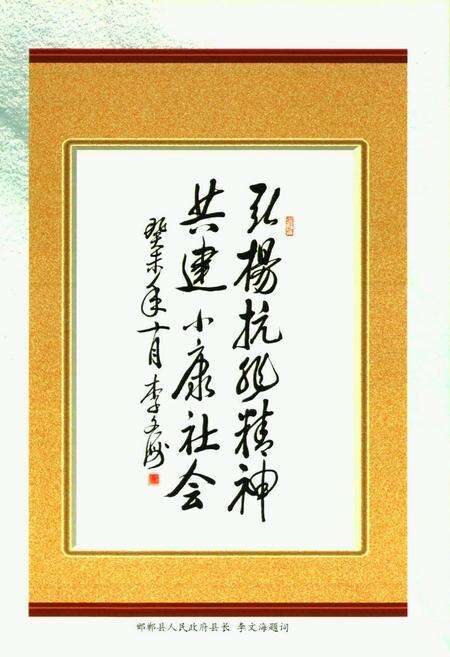 弘楊抗非精神
共建小康社会
癸未年十月李文海
邯郸县人民政府县长 李文海题词